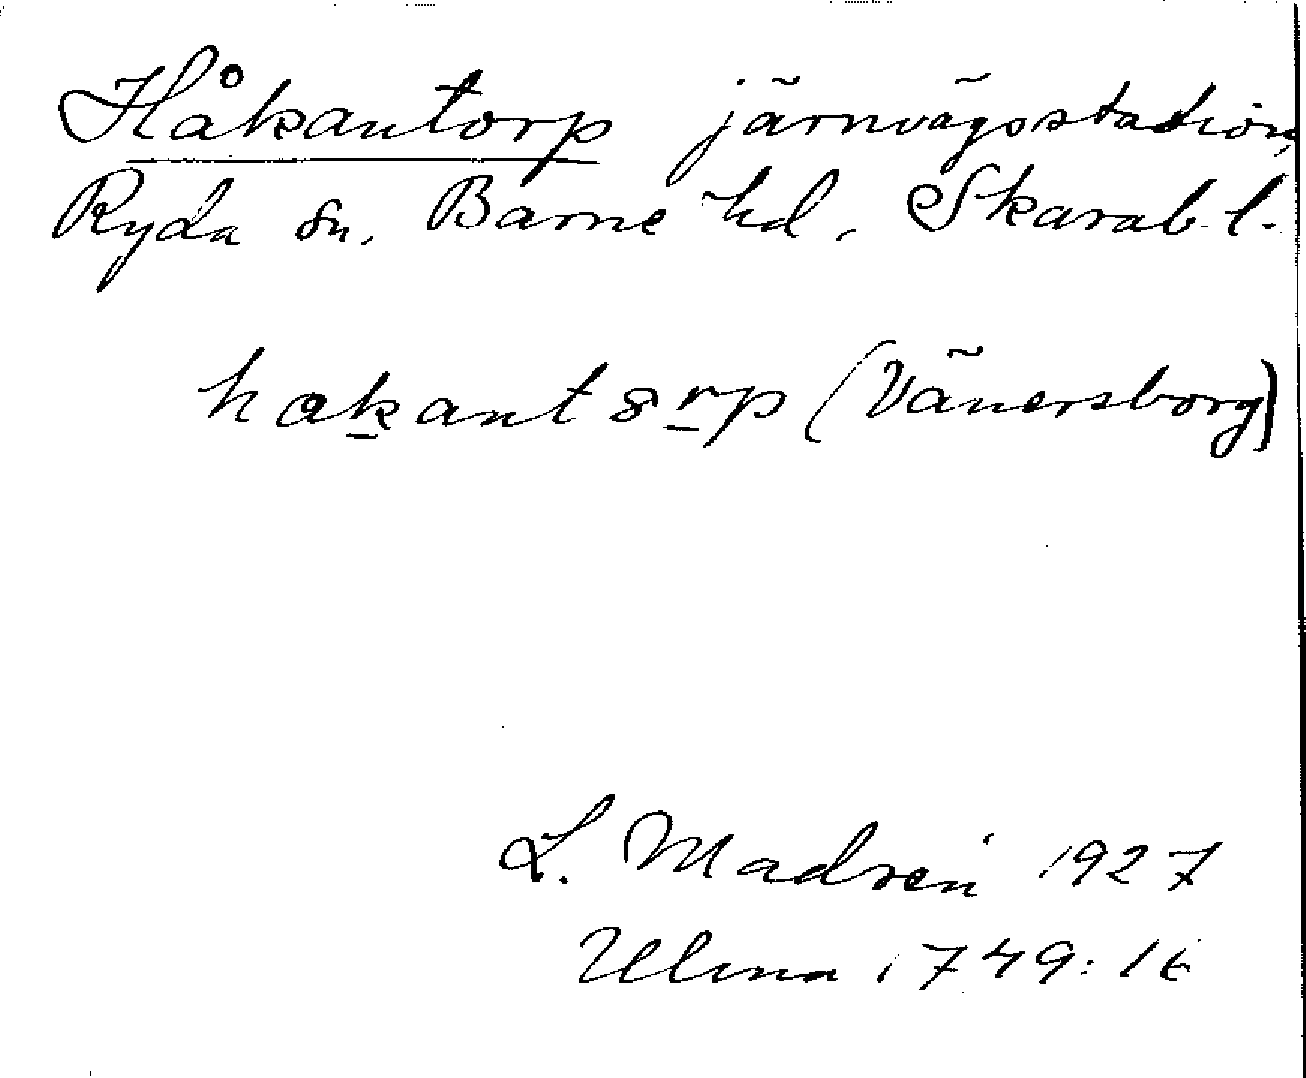 Håkantorp järnvägsstation,
Ryda sn. Barne hd. Skarab. l.
hak̲ant8r̲p (Vänersborg)
L. Madsen 1927
Ulma 1749:16